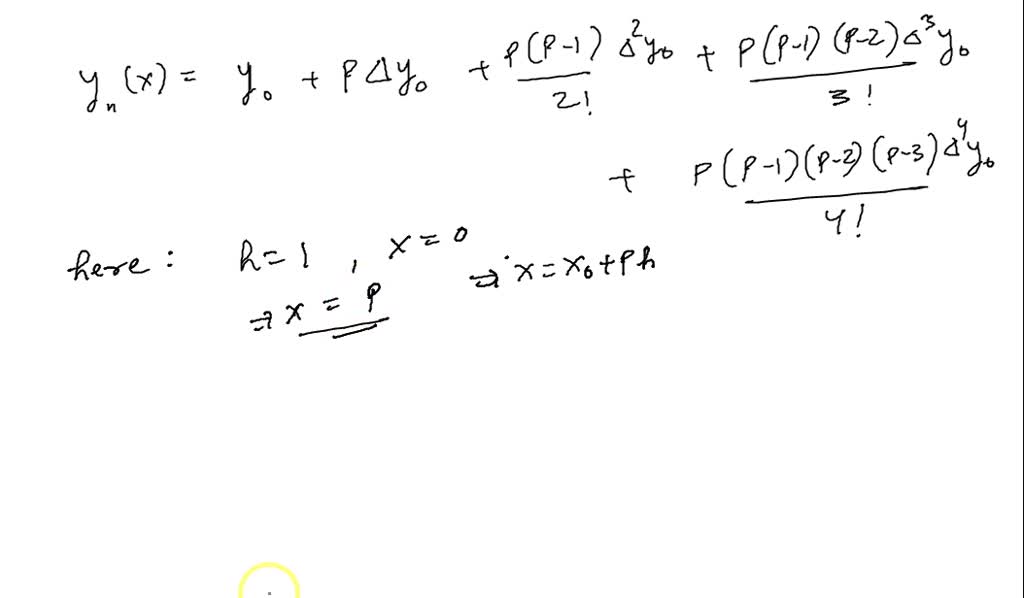 yₙ(x) = y₀ + pΔy₀ + p(p-1) Δ²y₀ / 2! + p(p-1)(p-2)Δ³y₀ / 3!
+ p(p-1)(p-2)(p-3)Δ⁴y₀ / 4!
here : h=1 , x=0 ⇒ x=x₀+ph
⇒ x = p